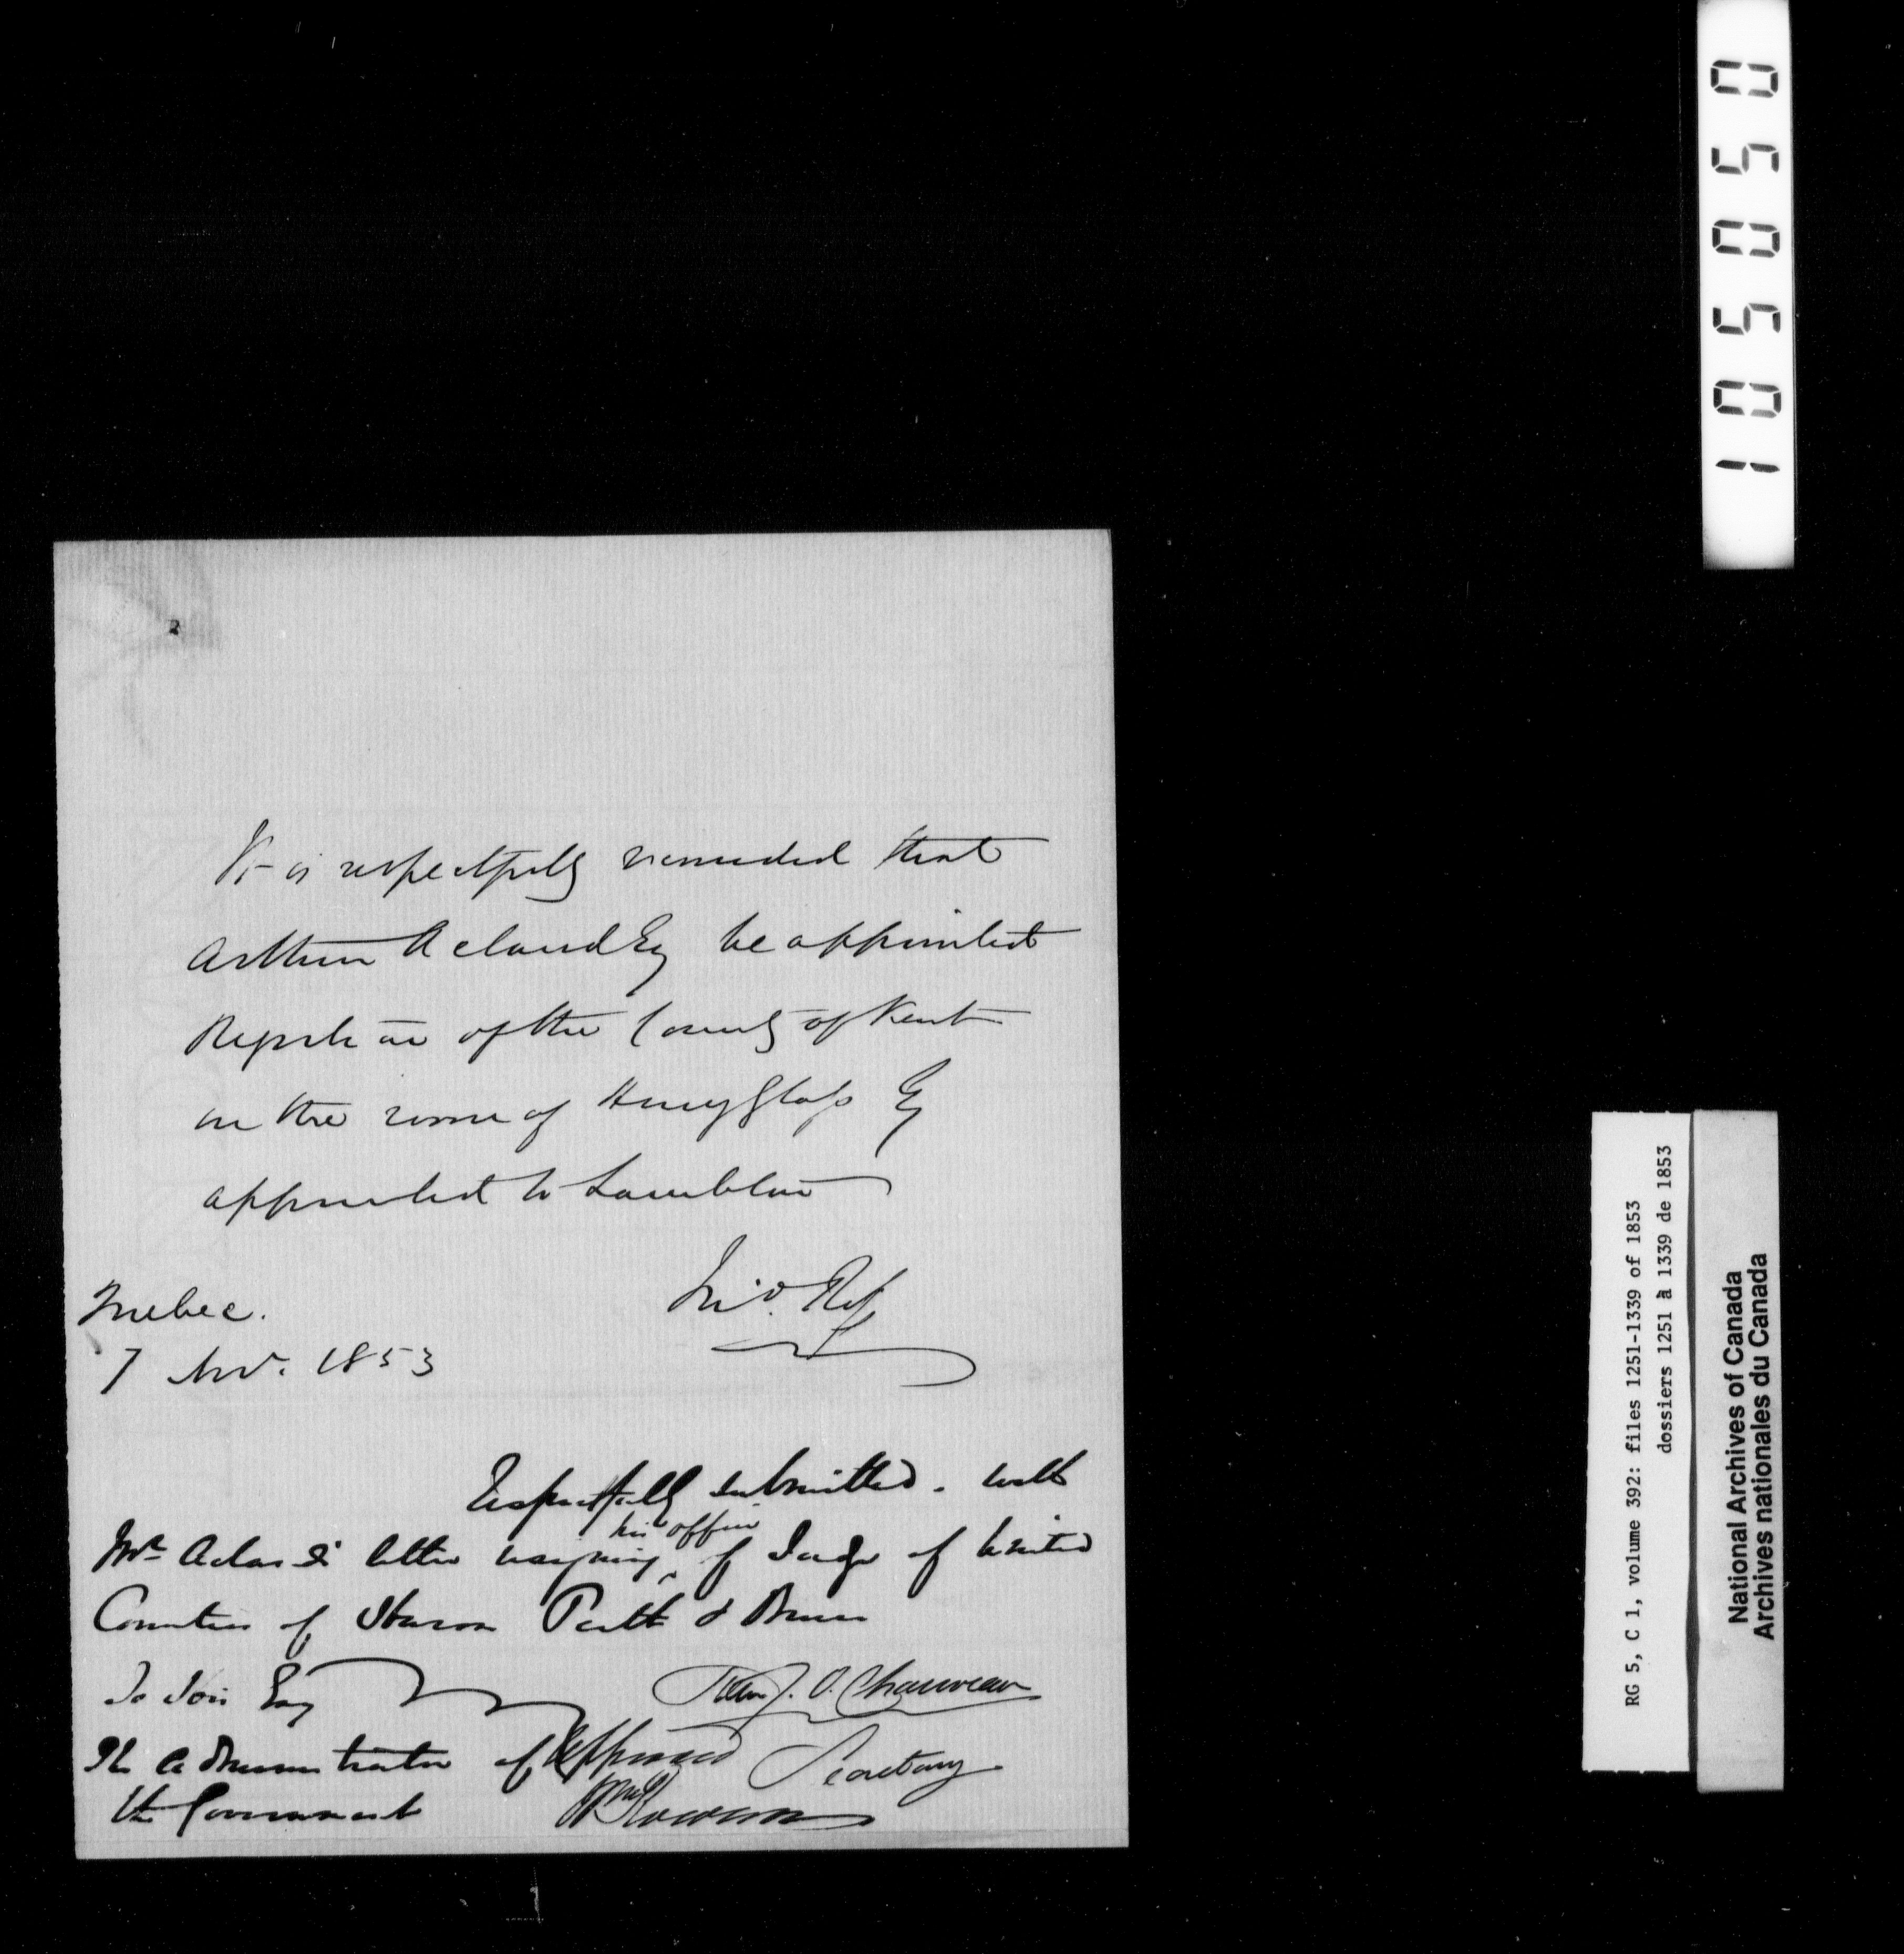 2
It is respectfully recommended that
Arthur Acland Esq be appointed
Registrar of the County of Kent
in the room of Henry Glass Esq
appointed to Lambton
Jno. Rolph
Quebec.
7 Nov. 1853
Respectfully submitted. with
Mr Acland's letter resigning his office of Judge of United
Counties of Huron Perth & Bruce
To
Esq
J. O. Chauveau
Secretary
The Administrator of
the Government
Approved
WRowan
105050
RG 5, C 1, volume 392: files 1251-1339 of 1853
dossiers 1251 à 1339 de 1853
National Archives of Canada
Archives nationales du Canada